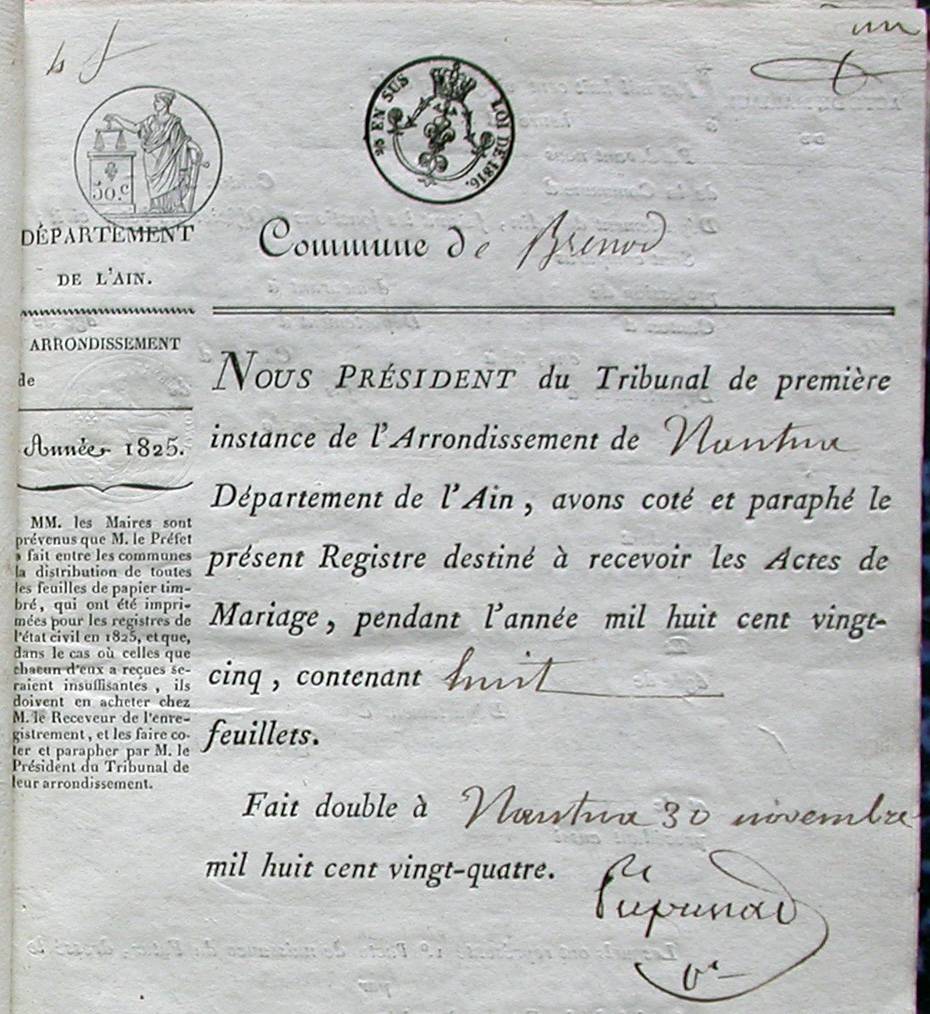 un
50.c
25 EN SUS LOI DE 1816.
DÉPARTEMENT
DE L'AIN.
Commune de Brenod
ARRONDISSEMENT
de
Année 1825.
MM. les Maires sont
prévenus que M. le Préfet
a fait entre les communes
la distribution de toutes
les feuilles de papier tim-
bré, qui ont été impri-
mées pour les registres de
l'état civil en 1825, et que,
dans le cas où celles que
chacun d'eux a reçues se-
raient insuffisantes, ils
doivent en acheter chez
M. le Receveur de l'enre-
gistrement, et les faire co-
ter et parapher par M. le
Président du Tribunal de
leur arrondissement.
NOUS PRÉSIDENT du Tribunal de première
instance de l'Arrondissement de Nantua
Département de l'Ain, avons coté et paraphé le
présent Registre destiné à recevoir les Actes de
Mariage, pendant l'année mil huit cent vingt-
cinq, contenant huit
feuillets.
Fait double à Nantua 30 novembre
mil huit cent vingt-quatre.